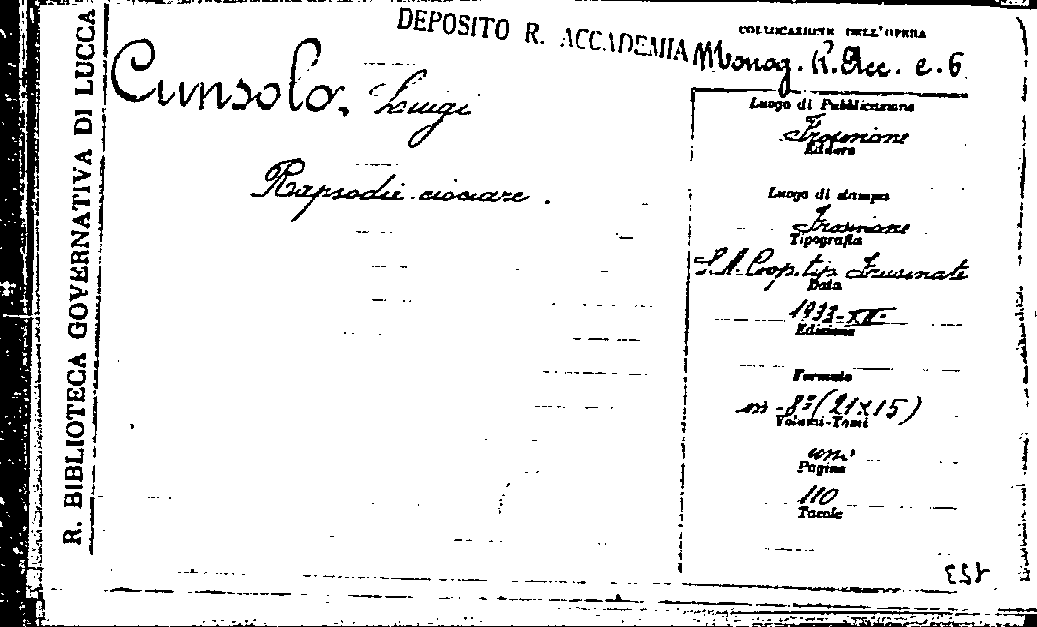 R. BIBLIOTECA GOVERNATIVA DI LUCCA
DEPOSITO R. ACCADEMIA
COLLOCAZIONE DELL'OPERA
Monog. R. Acc. c. 6
Cunsolo, Luigi
Rapsodie ciociare.
Luogo di Pubblicazione
Frosinone
Editore
Luogo di stampa
Frosinone
Tipografia
S.A. Coop. tip. Frusinate
Data
1933-XII-
Edizione
Formato
in-8º (21x15)
Volumi-Tomi
uno
Pagine
110
Tavole
153